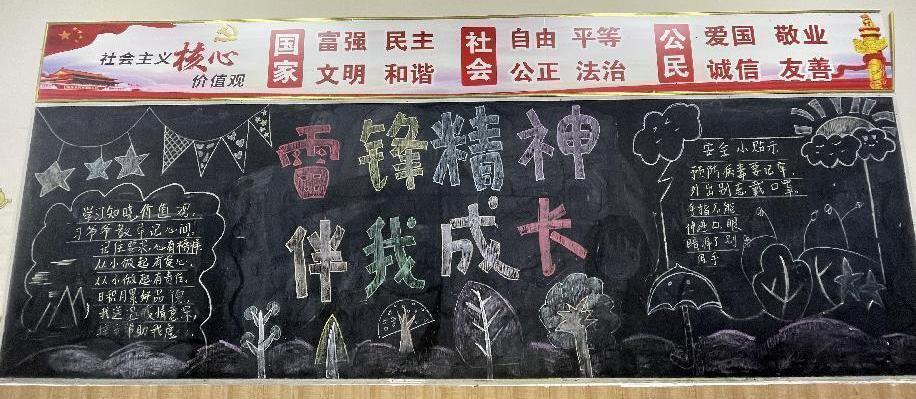 社会主义核心
价值观
国家
富强 民主
文明 和谐
社会
自由 平等
公正 法治
公民
爱国 敬业
诚信 友善
雷锋精神
伴我成长
学习知晓价值观,
习爷爷教导记心间.
记住要求心有榜样
从小做起有爱心.
从小做起有责任.
日积月累好品
接 帮助我
安全小贴示
预防病毒要记牢
外出别忘戴口罩.
手指不能
伸进口、眼